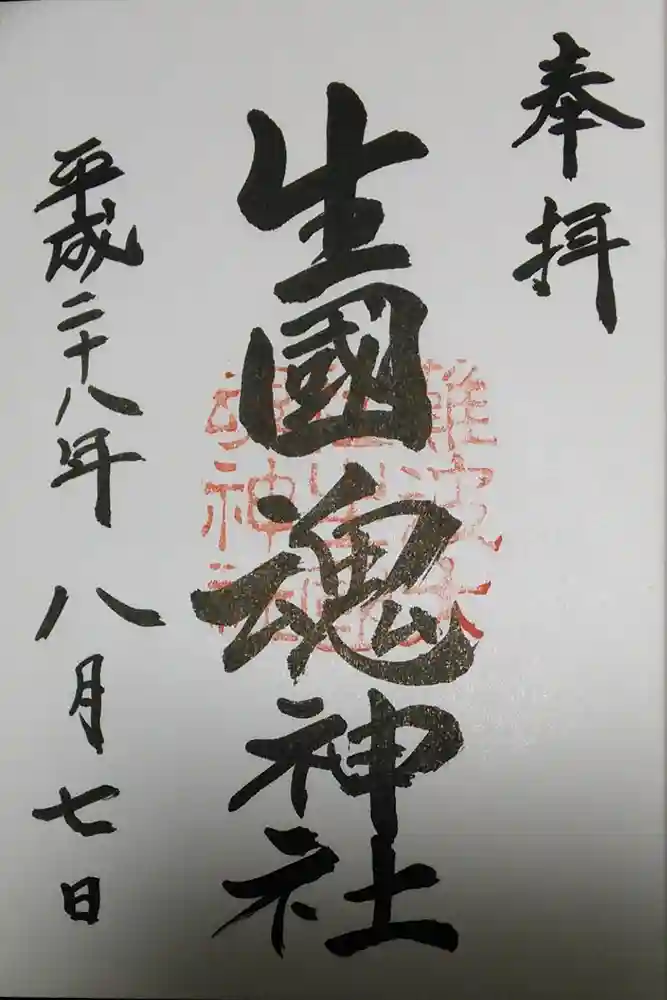 奉拝
生國魂神社
平成二十八年 八月七日